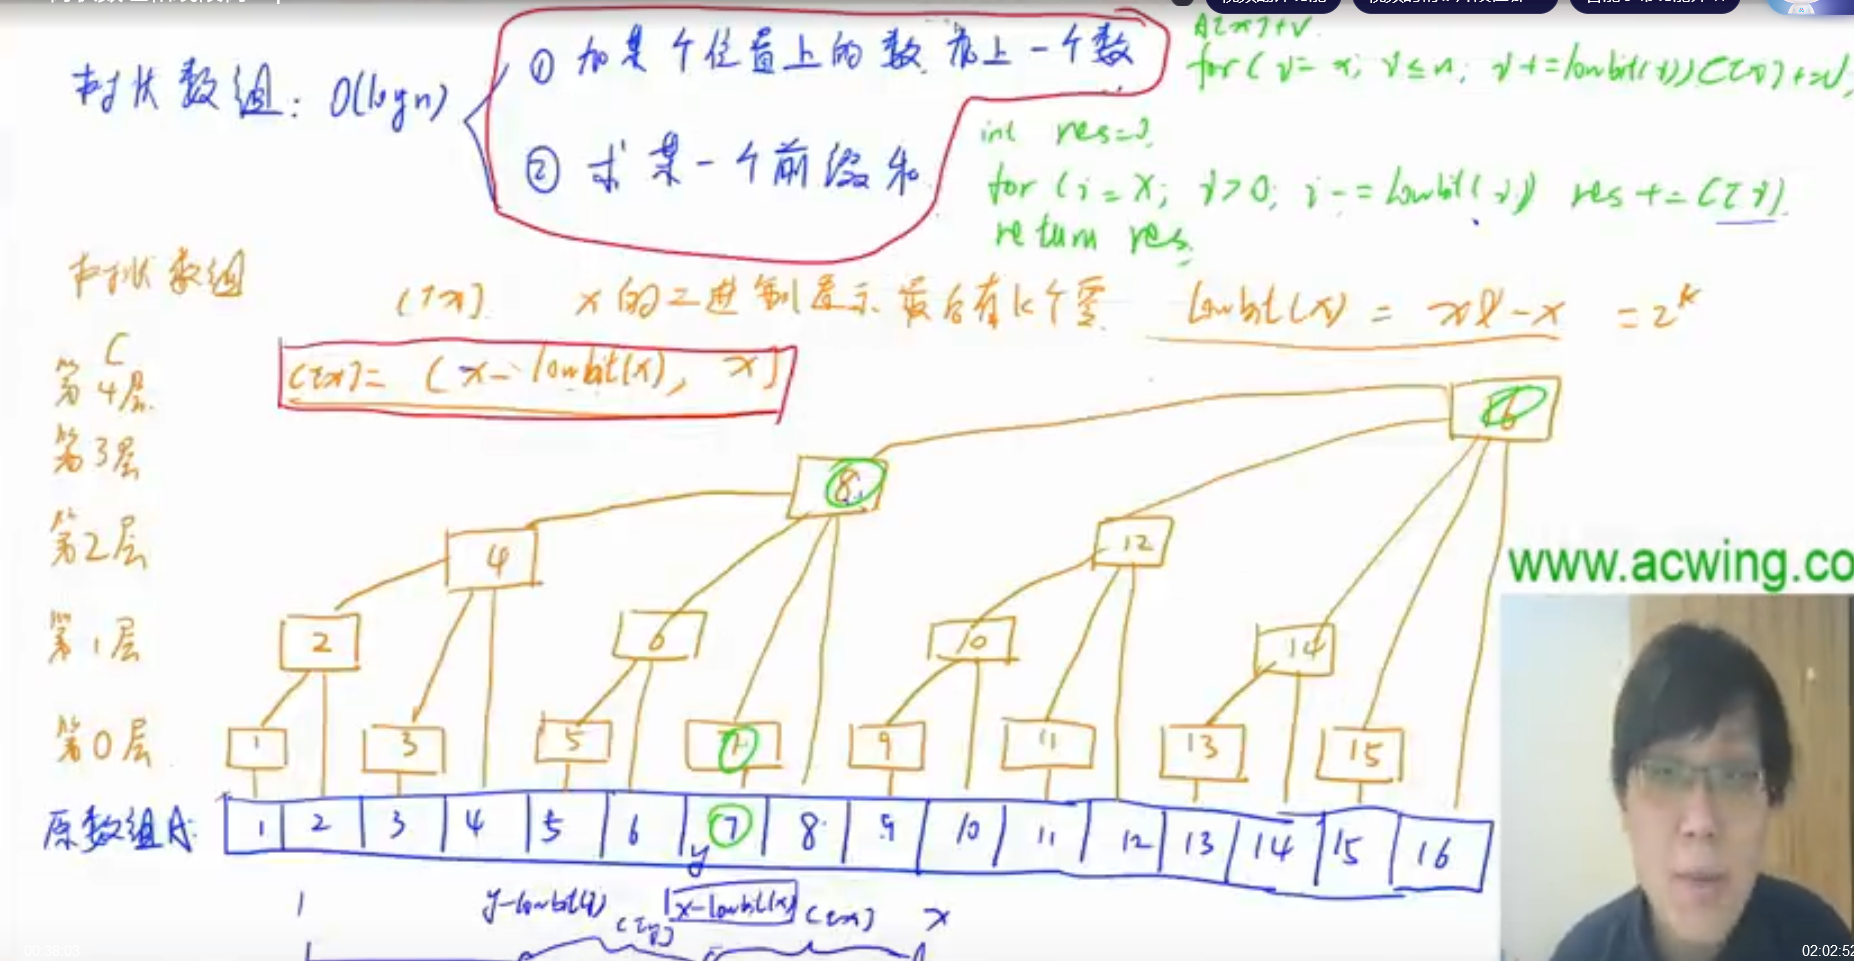 树状数组: O(logn)
① 加某个位置上的数, 加上一个数
② 求某一个前缀和
A[x]+v
for(i=x; i≤n; i+=lowbit(i)) C[i]+=v;
int res=0;
for(i=x; i>0; i-=lowbit(i)) res+=C[i]
return res;
树状数组
C[x] x的二进制表示最后有k个零 lowbit(x) = x&-x = 2^k
C
C[x]= (x-lowbit(x), x]
第4层
16
第3层
8
第2层
4 12
www.acwing.co
第1层
2 6 10 14
第0层
1 3 5 7 9 11 13 15
原数组A:
1 2 3 4 5 6 7 8 9 10 11 12 13 14 15 16
y
1 y-lowbit(y) x-lowbit(x) C[x] x
C[y]
00:38:03
02:02:52